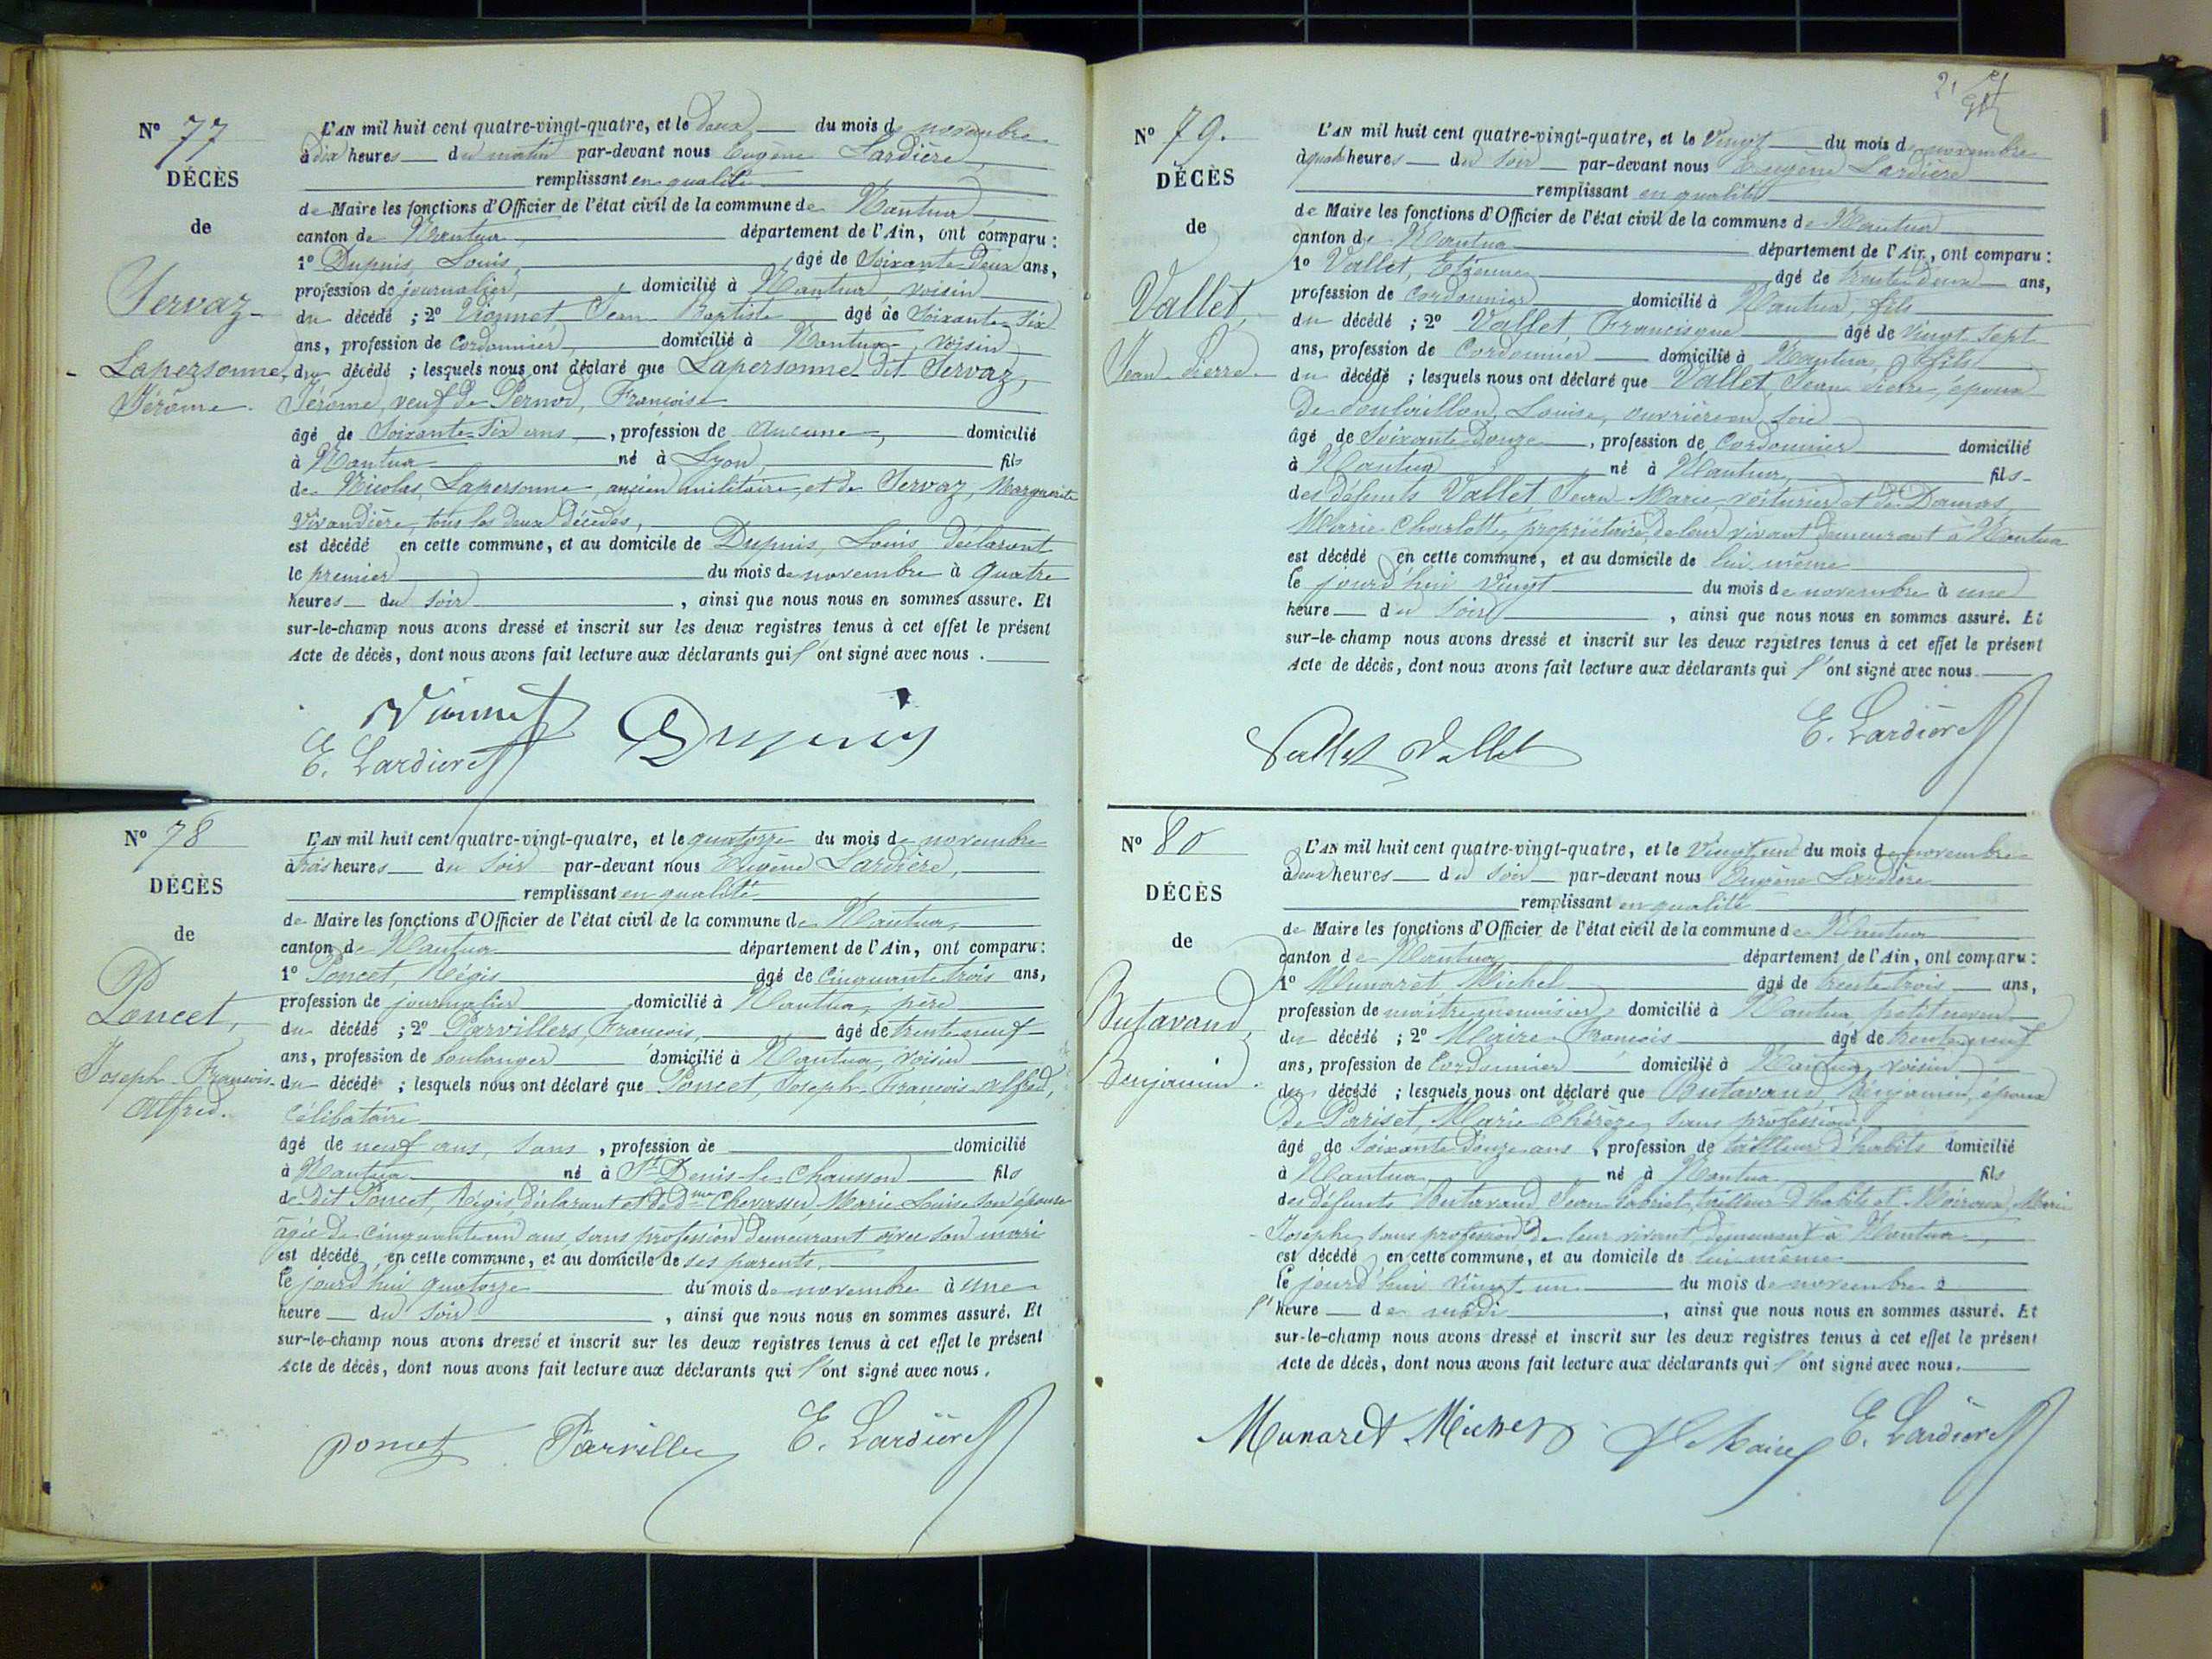 Nº 77
DÉCÈS
de
Servaz-
Lapersonne,
Jérôme.
L'AN mil huit cent quatre-vingt-quatre, et le deux du mois de novembre
à dix heures du matin par-devant nous Eugène Lardière,
remplissant en qualité
de Maire les fonctions d'Officier de l'état civil de la commune de Nantua
canton de Nantua, département de l'Ain, ont comparu :
1º Dupuis, Louis, âgé de Soixante-deux ans,
profession de journalier, domicilié à Nantua, voisin
du décédé ; 2º Vionnet Jean Baptiste âgé de Soixante-six
ans, profession de Cordonnier, domicilié à Nantua, voisin
du décédé ; lesquels nous ont déclaré que Lapersonne dit Servaz,
Jérôme, veuf de Pernod, Françoise
âgé de Soixante-six ans, profession de Aucune, domicilié
à Nantua né à Lyon, fils
de Nicolas, Lapersonne, ancien militaire, et de Servaz, Marguerite
Vivandière, tous les deux décédés,
est décédé en cette commune, et au domicile de Dupuis, Louis déclarant
le premier du mois de novembre à Quatre
heures du soir, ainsi que nous nous en sommes assuré. Et
sur-le-champ nous avons dressé et inscrit sur les deux registres tenus à cet effet le présent
Acte de décès, dont nous avons fait lecture aux déclarants qui l'ont signé avec nous.
Vionnet
E. Lardière
Dupuis
Nº 78
DÉCÈS
de
Poncet,
Joseph-François-
Alfred.
L'AN mil huit cent quatre-vingt-quatre, et le quatorze du mois de novembre
à trois heures du soir par-devant nous Eugène Lardière,
remplissant en qualité
de Maire les fonctions d'Officier de l'état civil de la commune de Nantua,
canton de Nantua département de l'Ain, ont comparu :
1º Poncet, Régis âgé de cinquante-trois ans,
profession de journalier domicilié à Nantua, père
du décédé ; 2º Parvillers, François, âgé de trente-neuf
ans, profession de boulanger domicilié à Nantua, voisin
du décédé ; lesquels nous ont déclaré que Poncet, Joseph-François-Alfred,
Célibataire
âgé de neuf ans, sans, profession de domicilié
à Nantua né à St Denis-le-Chausson fils
de dit Poncet, Régis, déclarant et de dme Chevassu, Marie-Louise son épouse
âgée de cinquante un ans, sans profession demeurant avec son mari
est décédé en cette commune, et au domicile de ses parents,
le jourd'hui quatorze du mois de novembre à une
heure du soir, ainsi que nous nous en sommes assuré. Et
sur-le-champ nous avons dressé et inscrit sur les deux registres tenus à cet effet le présent
Acte de décès, dont nous avons fait lecture aux déclarants qui l'ont signé avec nous.
poncet Parviller E. Lardière
21
Nº 79.
DÉCÈS
de
Vallet,
Jean-Pierre.
L'AN mil huit cent quatre-vingt-quatre, et le Vingt du mois de novembre
à quatre heures du soir par-devant nous Eugène Lardière
remplissant en qualité
de Maire les fonctions d'Officier de l'état civil de la commune de Nantua
canton de Nantua département de l'Ain, ont comparu :
1º Vallet, Etienne âgé de trente-deux ans,
profession de Cordonnier domicilié à Nantua, fils
du décédé ; 2º Vallet, Francisque âgé de vingt-sept
ans, profession de Cordonnier domicilié à Nantua, fils
du décédé ; lesquels nous ont déclaré que Vallet, Jean-Pierre, époux
Louise, ouvrière en soie
âgé de Soixante-douze, profession de Cordonnier domicilié
à Nantua né à Nantua, fils
des défunts Vallet, Jean-Marie, voiturier et de Damas,
Marie-Charlotte, propriétaire, de leur vivant demeurant à Nantua
est décédé en cette commune, et au domicile de lui-même
le jourd'hui vingt du mois de novembre à une
heure du soir, ainsi que nous nous en sommes assuré. Et
sur-le-champ nous avons dressé et inscrit sur les deux registres tenus à cet effet le présent
Acte de décès, dont nous avons fait lecture aux déclarants qui l'ont signé avec nous.
Vallet Vallet
E. Lardière
Nº 80
DÉCÈS
de
Butavand,
Benjamin.
L'AN mil huit cent quatre-vingt-quatre, et le Vingt-un du mois de novembre
à deux heures du soir par-devant nous Eugène Lardière
remplissant en qualité
de Maire les fonctions d'Officier de l'état civil de la commune de Nantua
canton de Nantua département de l'Ain, ont comparu :
1º Munaret, Michel âgé de trente-trois ans,
profession de maître menuisier domicilié à Nantua, petit neveu
du décédé ; 2º Maire François âgé de trente-neuf
ans, profession de Cordonnier domicilié à Nantua, voisin
du décédé ; lesquels nous ont déclaré que Butavand, Benjamin, époux
de Pariset, Marie-Thérèze, sans profession,
âgé de Soixante-douze ans, profession de tailleur d'habits domicilié
à Nantua né à Nantua, fils
des défunts Butavand, Jean-Gabriel, tailleur d'habits et Marie
Josephe, sans profession, de leur vivant, demeurant à Nantua,
est décédé en cette commune, et au domicile de lui-même
le jourd'hui vingt-un du mois de novembre à
l'heure de midi, ainsi que nous nous en sommes assuré. Et
sur-le-champ nous avons dressé et inscrit sur les deux registres tenus à cet effet le présent
Acte de décès, dont nous avons fait lecture aux déclarants qui l'ont signé avec nous.
Munaret Michel E. Lardière